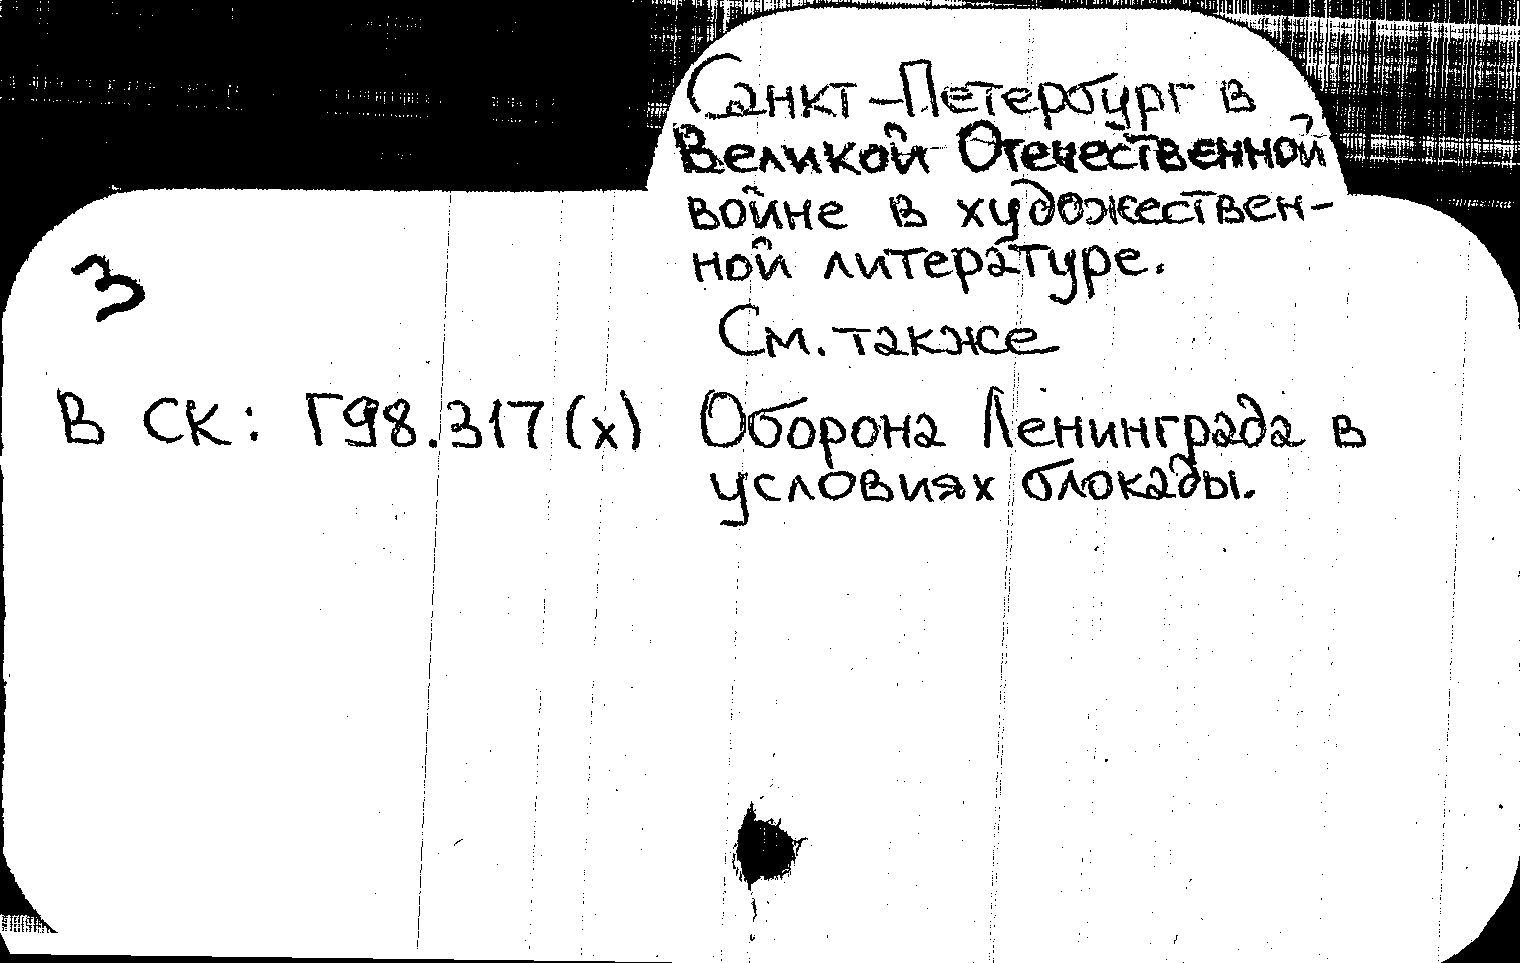 Санкт-Петербург в
Великой Отечественной
войне в художествен-
ной литературе.
3
См. также
В СК: Г98.317(х) Оборона Ленинграда в
условиях блокады.